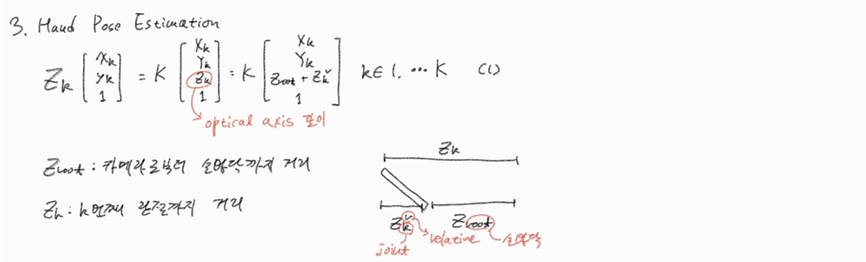 3. Hand Pose Estimation
Z_k [x_k y_k 1] = K [X_k Y_k Z_k 1] = K [X_k Y_k Z_root + Z_k^r 1] k ∈ 1, ... K (1)
optical axis
Z_root : 카메라로부터 손바닥까지 거리
Z_k : k번째 관절까지 거리
Z_k
Z_k^r Z_root
joint relative 손바닥